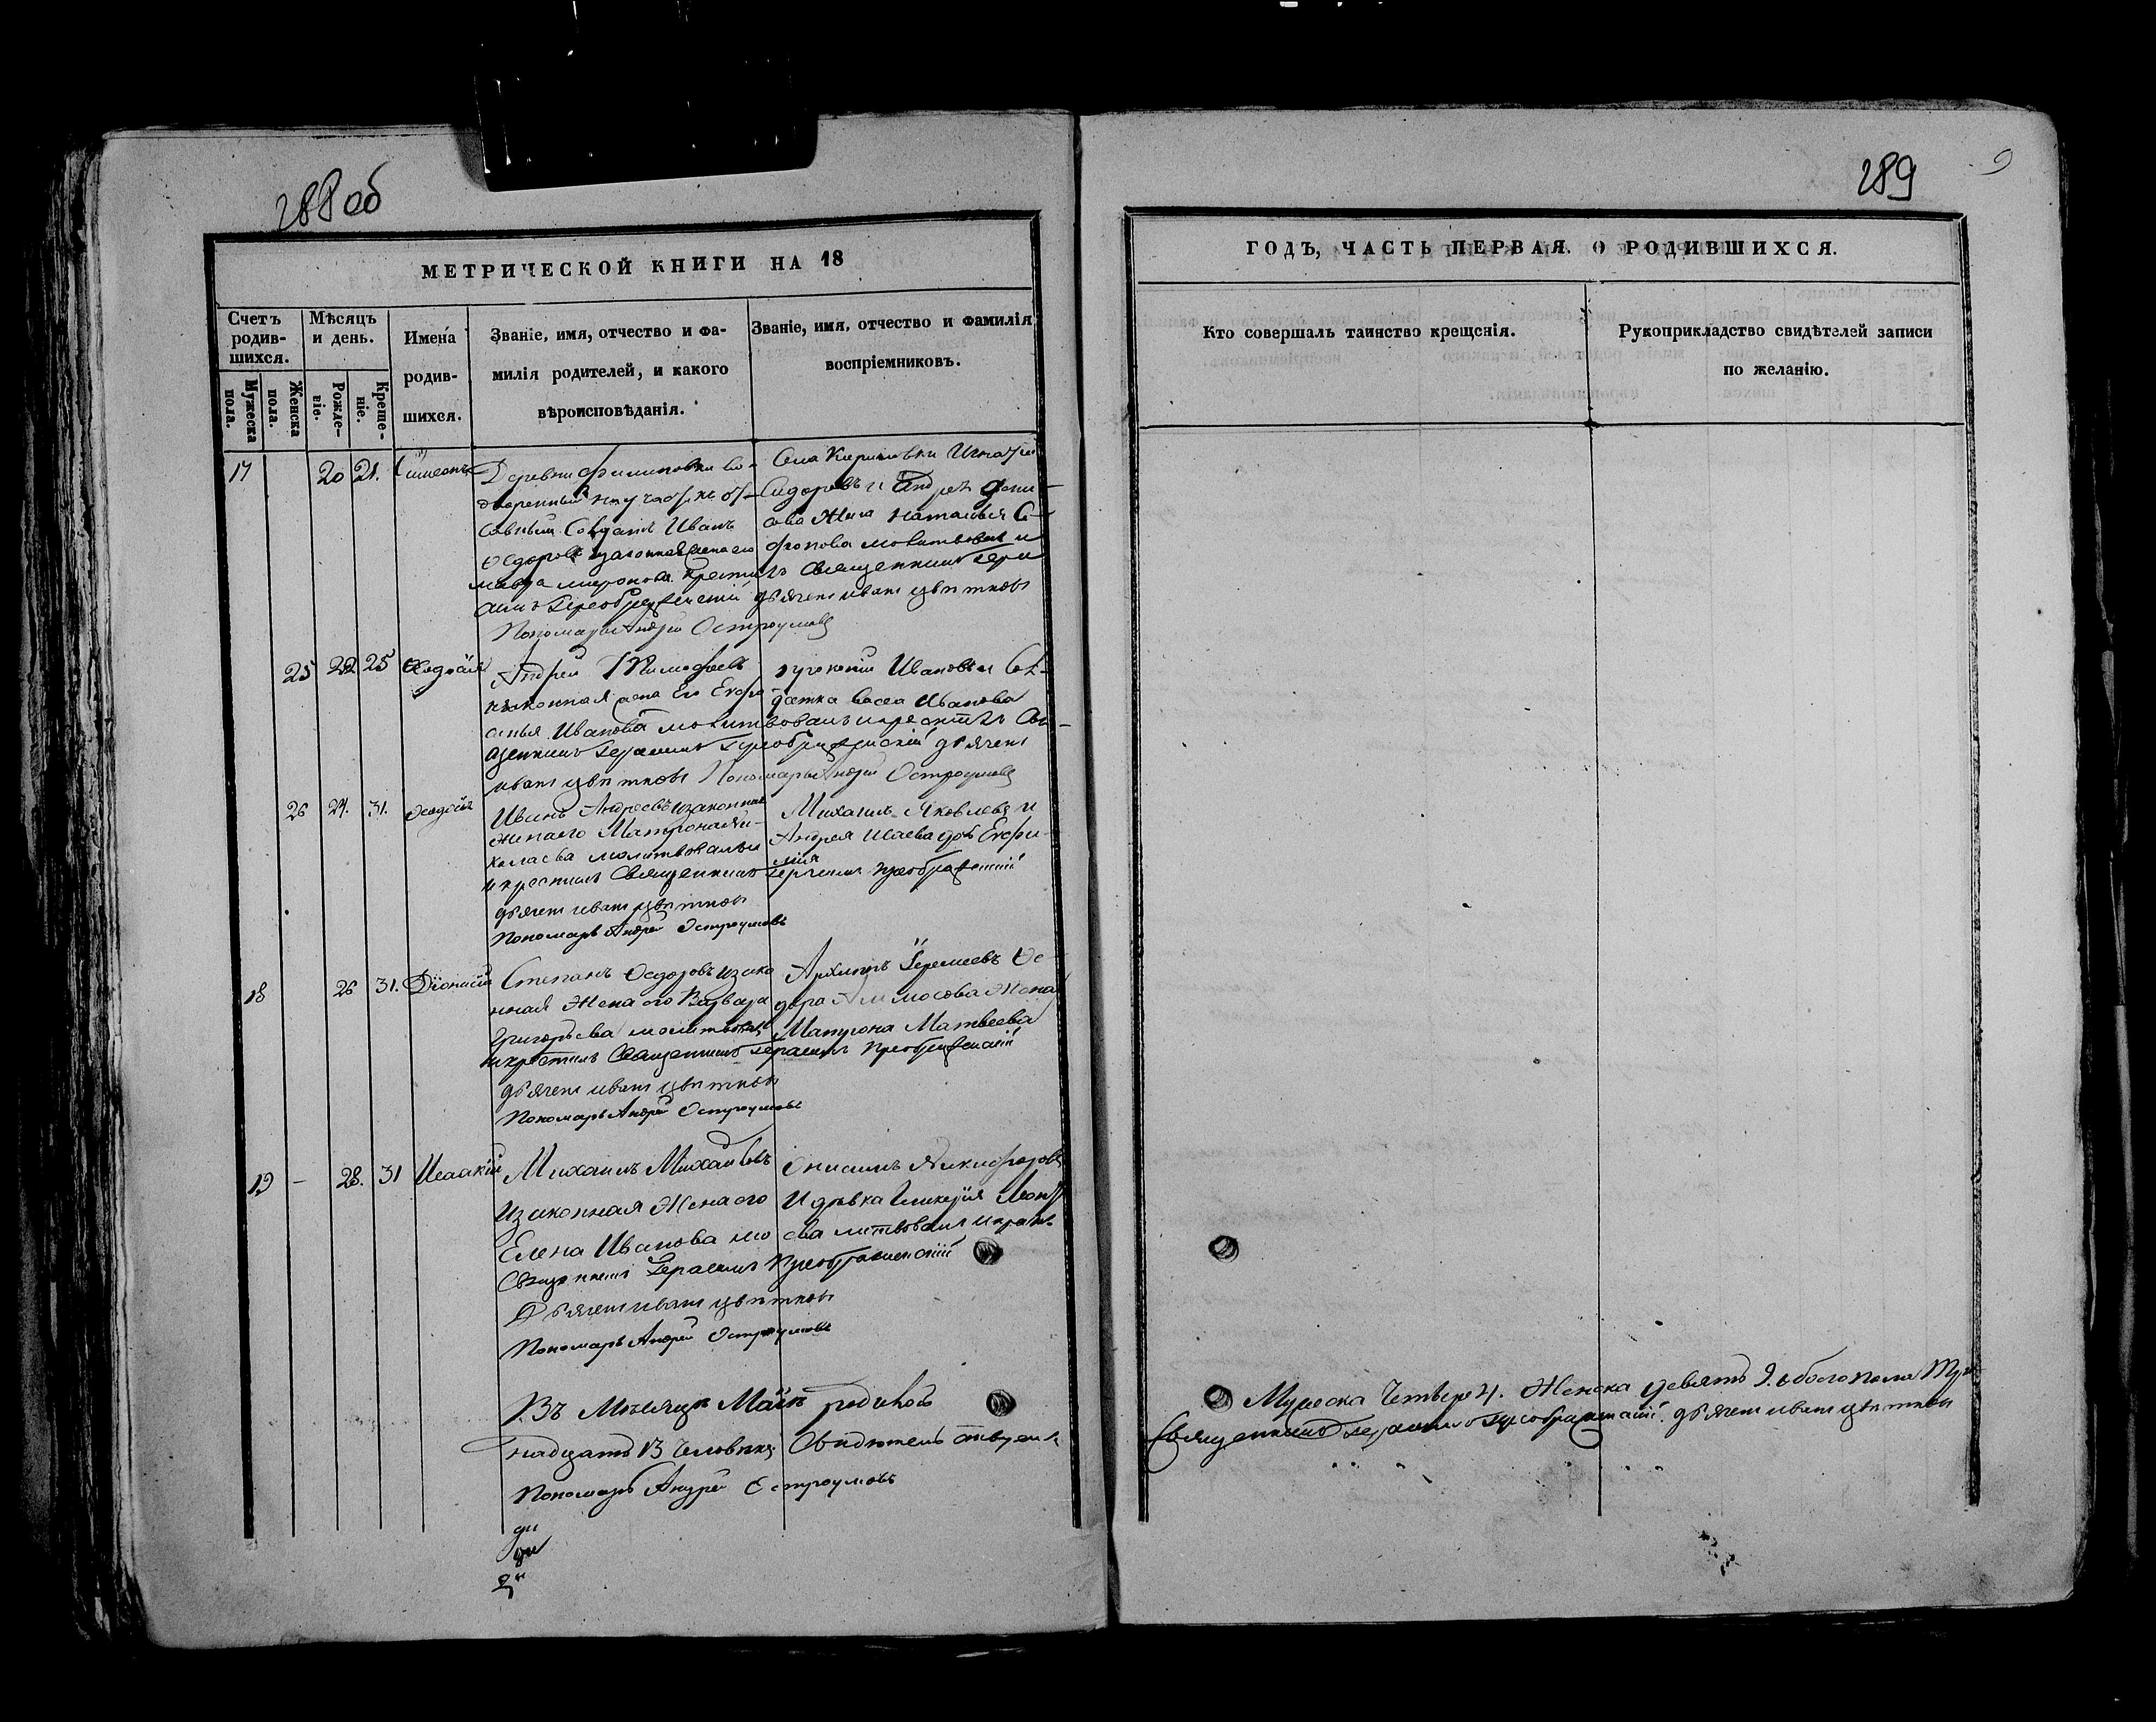 288 об
МЕТРИЧЕСКОЙ КНИГИ НА 18
Счетъ родив-шихся.
Мужеска пола.
Женска пола.
Мѣсяцъ и день.
Рожде-ніе.
Креще-ніе.
Имена родив-шихся.
Званіе, имя, отчество и фа-
милія родителей, и какого
вѣроисповѣданія.
Званіе, имя, отчество и фамилія
воспріемниковъ.
17 20 21. Симеонъ
Деревни Филиповки
Иванъ
Ѳедоровъ
Мавра Миронова. Крестилъ Священникъ Гера
симъ Преображенскій дьячекъ иванъ цвѣтковъ
Пономарь Андрей Остроумовъ
Села Кириловки Игнатій
Сидоровъ и Андрея
жена Наталья
молитвовалъ и
25 22 25 Ѳеодосія
Андрей Тимофеевъ
изаконная жена Его Евфро
синья Иванова молитвовалъ и крестилъ Свя-
щенникъ Герасимъ Преображенскій дьячекъ
иванъ цвѣтковъ Пономарь Андрей Остроумовъ
Ивановъ и Сол-
датка Васса Иванова
26 24. 31. Ѳеодосія
Иванъ Андреевъ изаконная
жена его Матрона Ни-
колаева молитвовалъ
и крестилъ Священникъ Герасимъ Преображенскій
дьячекъ иванъ цвѣтковъ
Пономарь Андрей Остроумовъ
Михаилъ Яковлевъ и
Андрея Исаева дочь Евфи-
мія
18 26 31. Діонисій
Степанъ Ѳедоровъ изако
нная Жена его Варвара
Григорьева молитвовалъ
и крестилъ Священникъ Герасимъ Преображенскій
дьячекъ иванъ цвѣтковъ
Пономарь Андрей Остроумовъ
Архипъ Еремеевъ Ѳе
дора Аммосова Жена
Матрона Матвеева
19 - 28. 31 Исаакій
Михаилъ Михайловъ
Изаконная Жена его
Елена Иванова мо
литвовалъ и крест
Священникъ Герасимъ Преображенскій
Дьячекъ иванъ цвѣтковъ
Пономарь Андрей Остроумовъ
Онисимъ Никифоровъ
И дѣвка Гликерія
Въ Мѣсяцѣ Маіѣ родилось
надцать 13 Человѣкъ
Пономарь Андрей Остроумовъ
289
ГОДЪ, ЧАСТЬ ПЕРВАЯ. О РОДИВШИХСЯ.
Кто совершалъ таинство крещенія.
Рукоприкладство свидѣтелей записи
по желанію.
Мужеска Четыре 4. Женска девять 9. обоего пола Три
Священникъ Герасимъ Преображенскій. дьячекъ иванъ цвѣтковъ